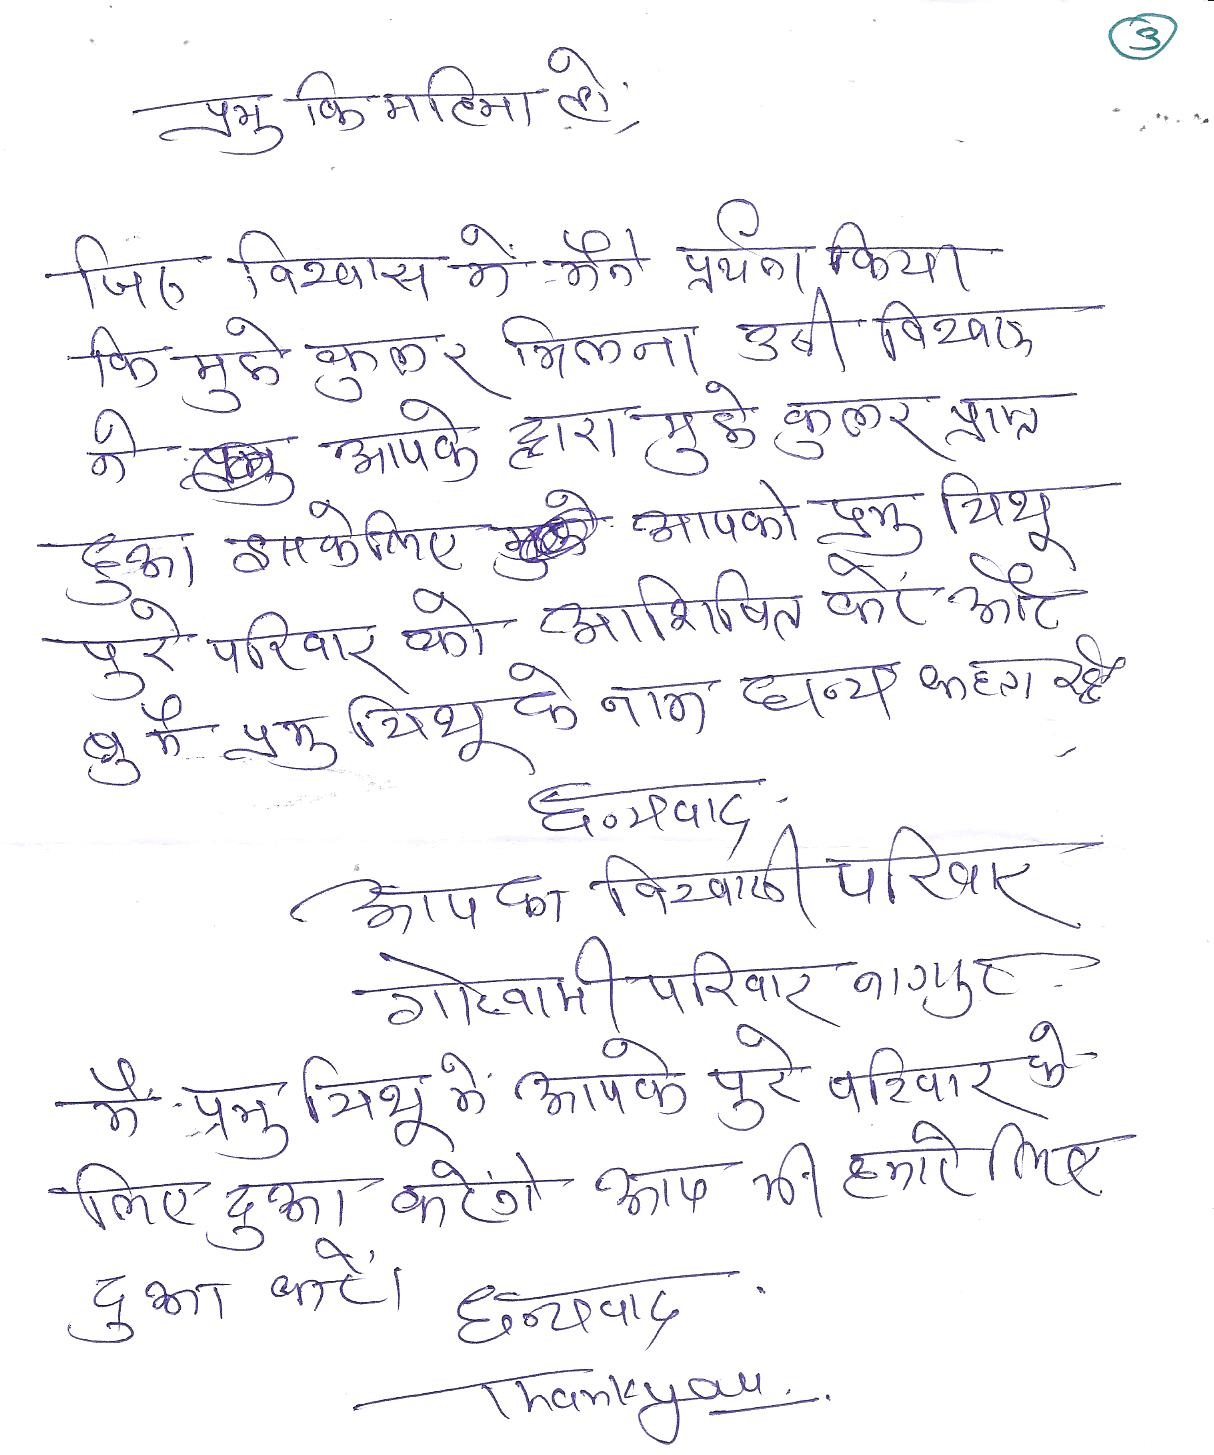 3
प्रभु कि महिमा हो,
जिस विश्वास में मैंने प्रर्थना किया
कि मुझे कुलर मिलना उसी विश्वास
ने आपके द्वारा मुझे कुलर प्राप्त
हुआ इसकेलिए आपको प्रभु यिशू
पुरे परिवार को आशिषित करें और
प्रभु यिशू के नाम धन्य कहता रहे
धन्यवाद.
आपका विश्वासी परिवार
गोस्वामी परिवार नागपुर
मैं प्रभु यिशू में आपके पुरे परिवार के
लिए दुआ करेंगे आप भी हमारे लिए
दुआ करें। धन्यवाद.
Thankyou..